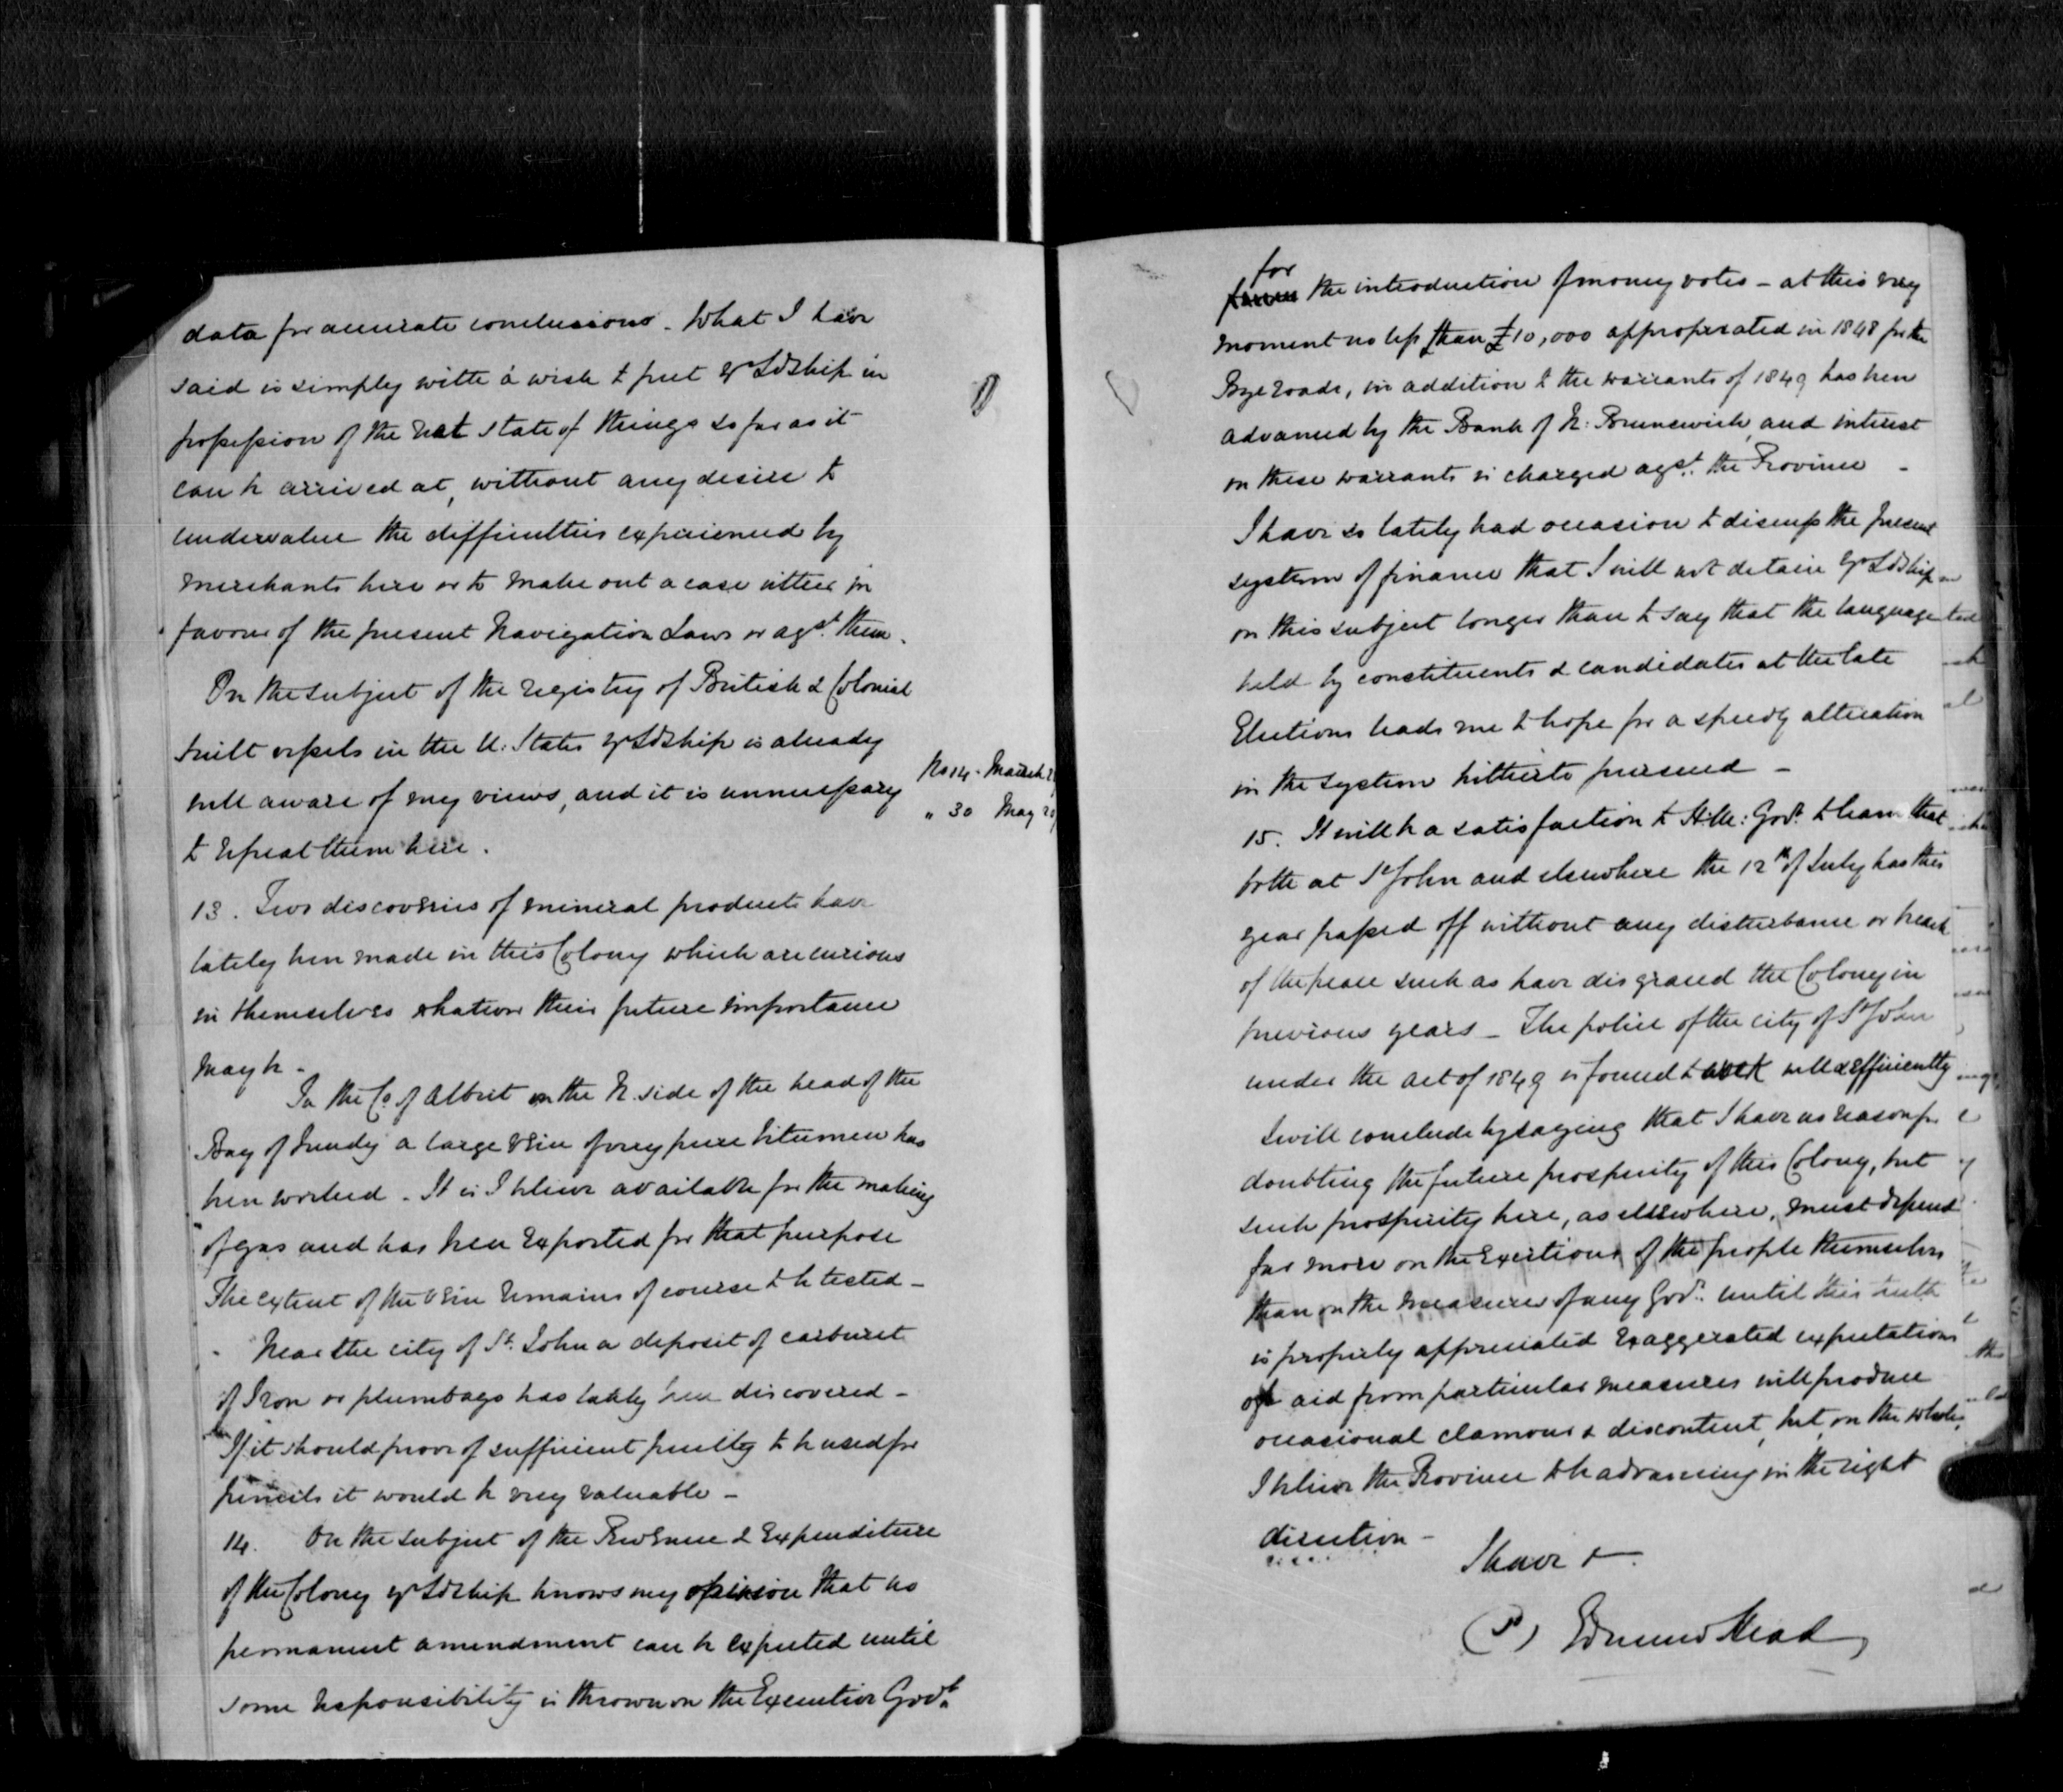 data for accurate conclusions. What I have
said is simply with a wish to put yr Ldship in
possession of the real state of things so far as it
can be arrived at, without any desire to
undervalue the difficulties experienced by
merchants here or to make out a case either in
favour of the present Navigation Laws or agst. them.
On the subject of the registry of British & Colonial
built vessels in the U. States yr Ldship is already
well aware of my views, and it is unnecessary
No 14. March
" 30 May
to repeat them here.
13. Two discoveries of mineral products have
lately been made in this Colony which are curious
in themselves whatever their future importance
may be -
In the Co. of Albert on the N. side of the head of the
Bay of Fundy a large vein of very pure bitumen has
been worked. It is I believe available for the making
of gas and has been exported for that purpose
The extent of the vein remains of course to be tested -
Near the city of St. John a deposit of carburet
of Iron or plumbago has lately been discovered -
If it should prove of sufficient purity to be used for
pencils it would be very valuable -
14. On the subject of the Revenue & Expenditure
of the Colony yr Ldship knows my opinion that no
permanent amendment can be expected until
some responsibility is thrown on the Executive Govt.
for
the introduction of money votes - at this very
moment no less than £10,000 appropriated in 1848 for the
Bye roads, in addition to the warrants of 1849 has been
advanced by the Bank of N. Brunswick, and interest
on these warrants is charged agst. the Province -
I have so lately had occasion to discuss the present
system of finance that I will not detain yr Ldship
on this subject longer than to say that the language
held by constituents & candidates at the late
Elections leads me to hope for a speedy alteration
in the system hitherto pursued -
15. It will be a satisfaction to H.M: Govt. to learn that
both at St John and elsewhere the 12th of July has this
year passed off without any disturbance or breach
of the peace such as have disgraced the Colony in
previous years - The police of the city of St John
under the act of 1849 is found to work well & efficiently
I will conclude by saying that I have no reason for
doubting the future prosperity of this Colony, but
such prosperity here, as elsewhere, must depend
far more on the exertions of the people themselves
than on the measures of any Govt. until this truth
is properly appreciated exaggerated expectations
of aid from particular measures will produce
occasional clamour & discontent, but, on the whole,
I believe the Province to be advancing in the right
direction -
I have &
(S) Edmund Head